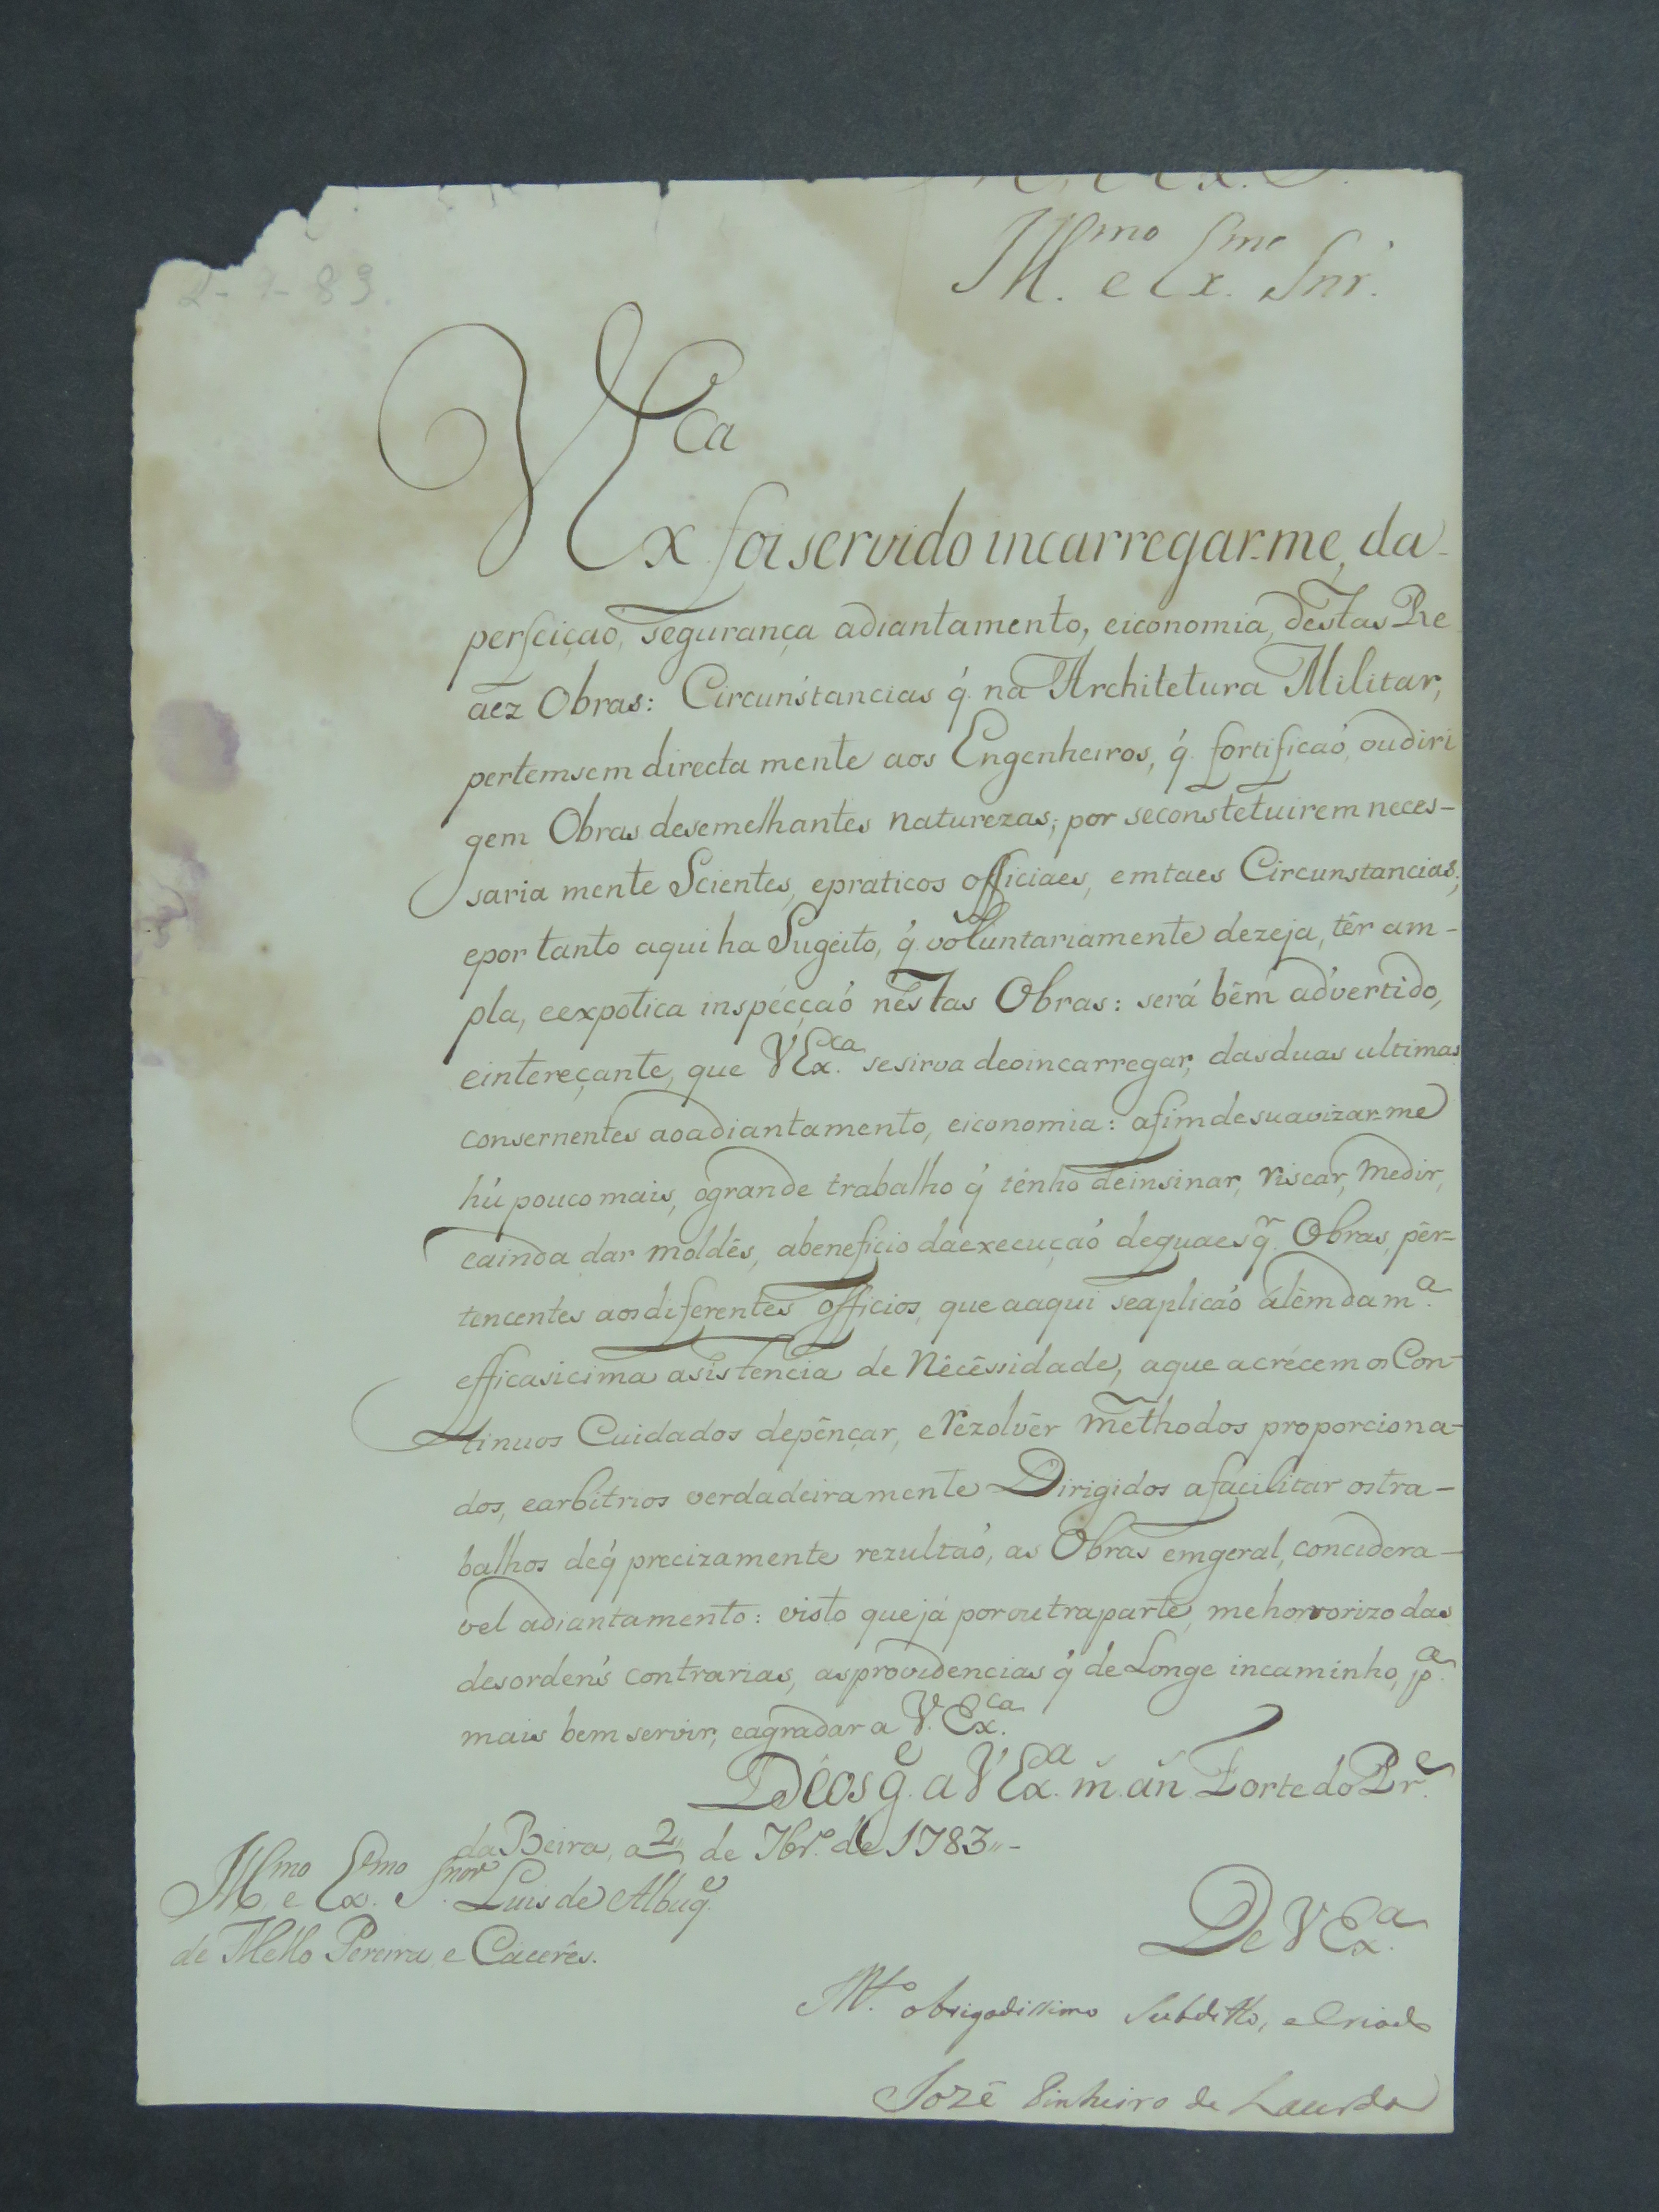 2-7-83.
Ill.mo e Ex.mo Snr.
V Ex.ca foi servido incarregar-me, da
perfeiçaõ, segurança adiantamento, eiconomia, destas Re
aez Obras: Circunstancias q́. na Architetura Militar,
pertemsem directa mente aos Engenheiros, q́. fortificaó, oudiri
gem Obras desemelhantes naturezas; por seconstetuirem neces-
saria mente Scientes, epraticos officiaes, emtaes Circunstancias;
epor tanto aqui ha Sugeito, q́. voluntariamente dezeja, têr am-
pla, eexpotica inspécçaó néstas Obras: será bêm advertido,
eintereçante, que V Ex.ca sesirva deoincarregar, dasduas ultimas
consernentes aoadiantamento, eiconomia: afimdesuavizar-me
hú poucomais, ogrande trabalho q́ tenho deinsinar, riscar, medir,
eainda dar moldês, abeneficio daexecuçaó dequaesq.r Obras, pêr-
tencentes aosdiferentes officios, que aaqui seaplicaó alêmdam.a
efficasicima asistencia de Nêcêssidade, aque acrécem os Con-
tinuos Cuidados depênçar, erézolvêr methodos proporciona-
dos, earbitrios verdadeiramente Dirigidos afacilitar ostra-
balhos deq́ precizamente rezultaó, as Obras emgeral, concidera-
vel adiantamento: visto quejá poroutraparte, mehorrorizo das
desordens contrarias, asprovidencias q́ de Longe incaminho, p.a
mais bem servir, eagradar a V. Ex.ca
Déos g.e a V Ex.a m. an. Forte do Pr.e
da Beira, a 2 de 7br.o de 1783,,-
Ill.mo e Ex.mo Snor. Luis de Albuq.e
de Mello Pereira, e Cácerês.
De V Ex.a
M.to obrigadissimo Subditto, e Criado
Jozé Pinheiro de Lacerda